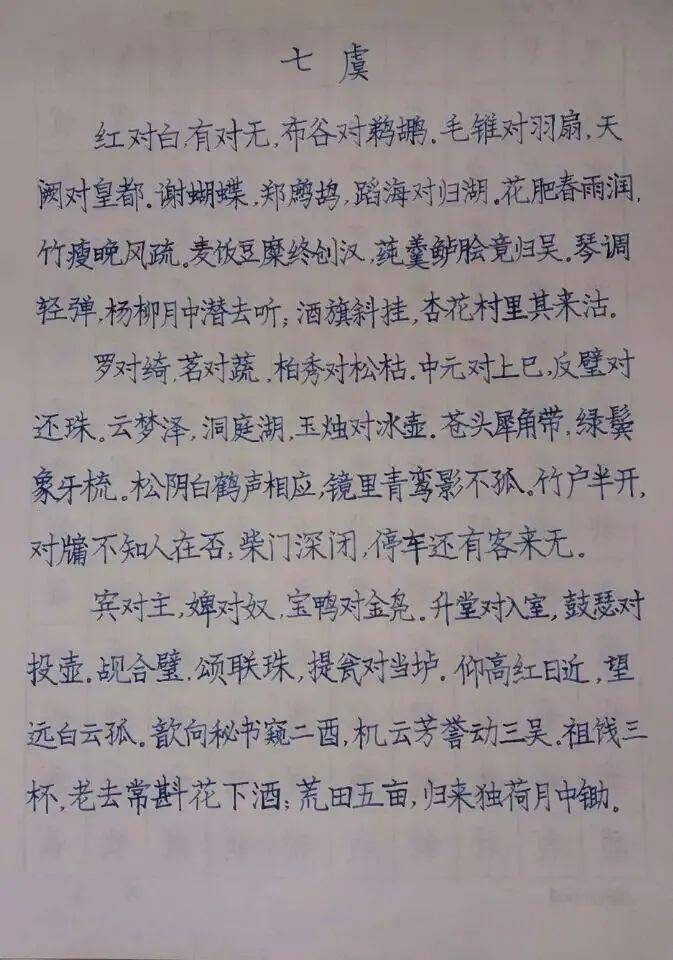 七虞
红对白,有对无,布谷对鹈鹕。毛锥对羽扇,天
阙对皇都。谢蝴蝶,郑鹧鸪,蹈海对归湖。花肥春雨润,
竹瘦晚风疏。麦饭豆糜终创汉,莼羹鲈脍竟归吴。琴调
轻弹,杨柳月中潜去听;酒旗斜挂,杏花村里共来沽。
罗对绮,茗对蔬,柏秀对松枯。中元对上巳,反璧对
还珠。云梦泽,洞庭湖,玉烛对冰壶。苍头犀角带,绿鬓
象牙梳。松阴白鹤声相应,镜里青鸾影不孤。竹户半开,
对牖不知人在否;柴门深闭,停车还有客来无。
宾对主,婢对奴,宝鸭对金凫。升堂对入室,鼓瑟对
投壶。觇合璧,颂联珠,提瓮对当垆。仰高红日近,望
远白云孤。歆向秘书窥二酉,机云芳誉动三吴。祖饯三
杯,老去常斟花下酒;荒田五亩,归来独荷月中锄。